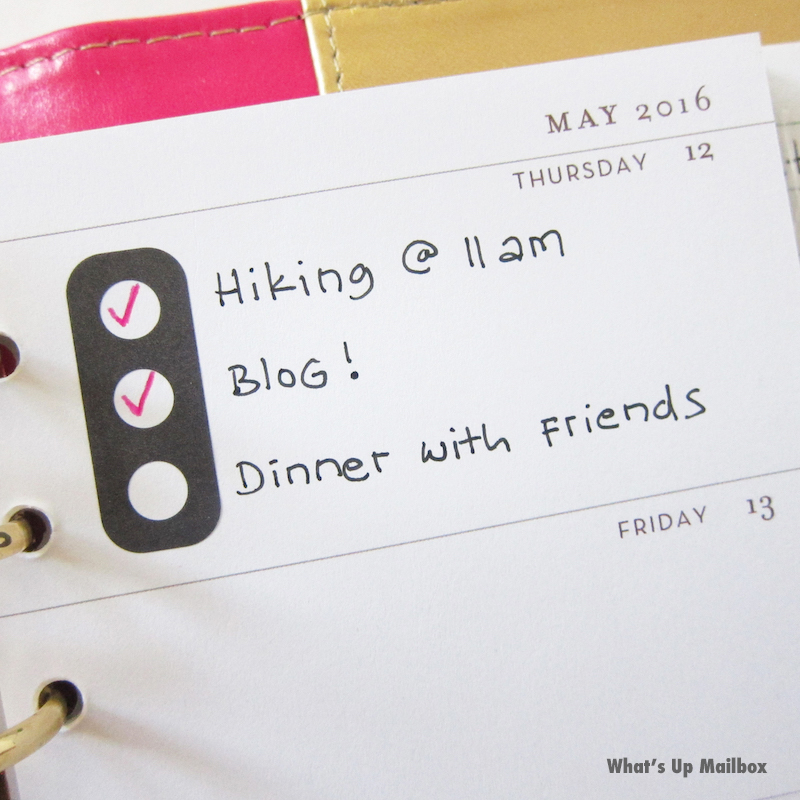 MAY 2016
THURSDAY 12
Hiking @ 11am
Blog!
Dinner with Friends
FRIDAY 13
What's Up Mailbox